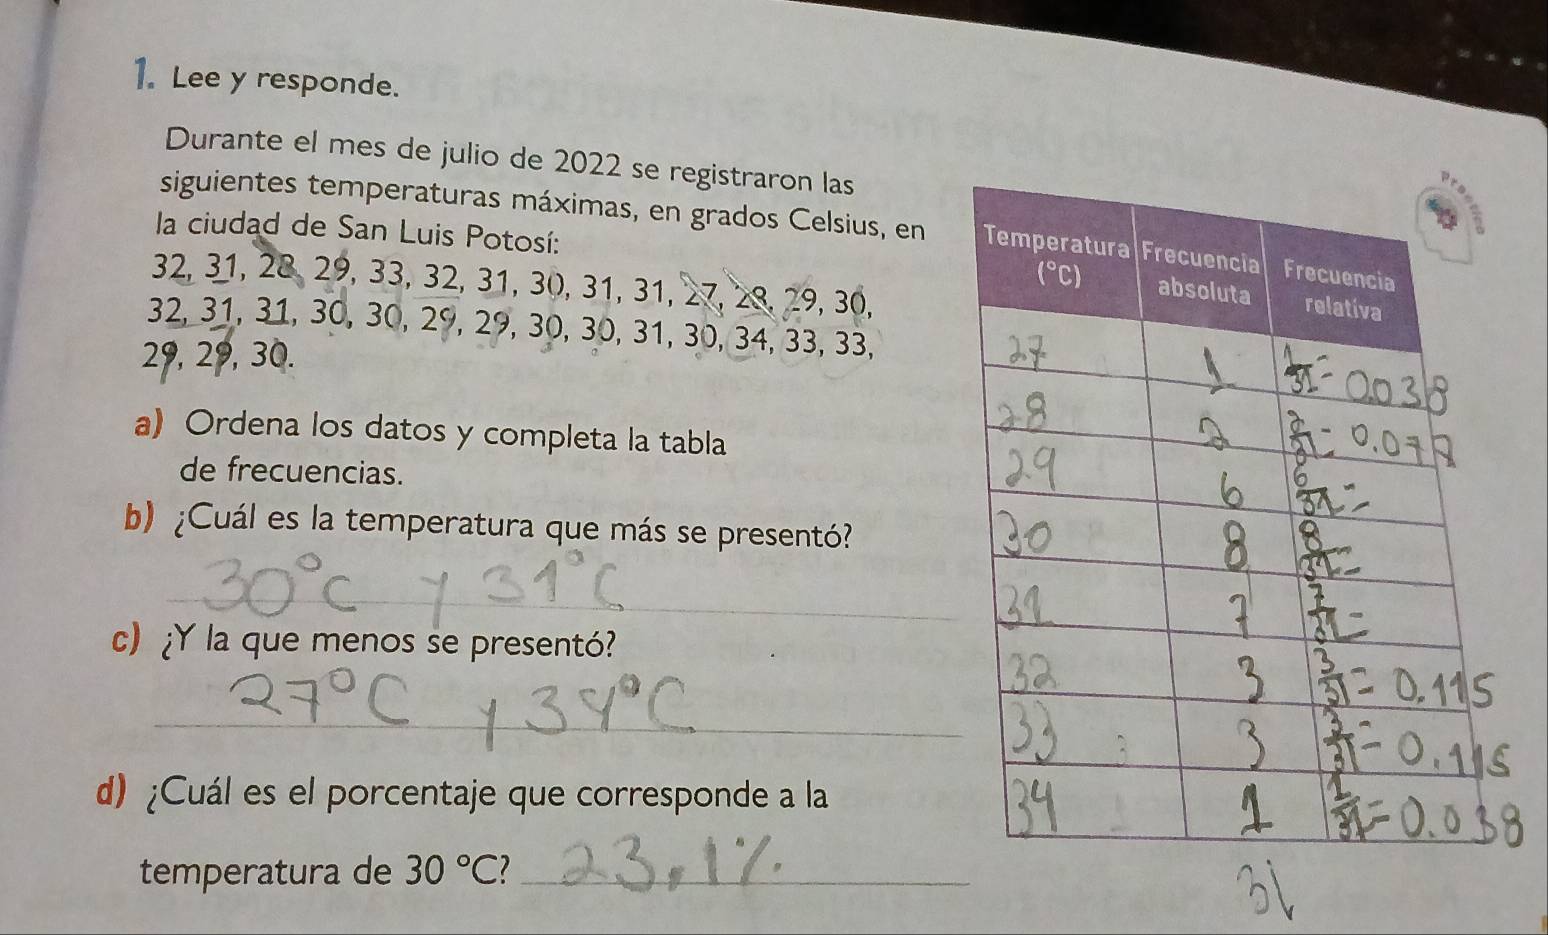 1. Lee y responde.
Durante el mes de julio de 2022 se registraron las
siguientes temperaturas máximas, en grados Celsius, en
la ciudad de San Luis Potosí:
32, 31, 28, 29, 33, 32, 31, 30, 31, 31, 27, 28, 29, 30,
32, 31, 31, 30, 30, 29, 29, 30, 30, 31, 30, 34, 33, 33,
29, 29, 30.
a) Ordena los datos y completa la tabla
de frecuencias.
b) ¿Cuál es la temperatura que más se presentó?
30°C y 31°C
c) ¿Y la que menos se presentó?
27°C y 34°C
d) ¿Cuál es el porcentaje que corresponde a la
temperatura de 30 °C? 23.1%
Practica
Temperatura (°C) Frecuencia absoluta Frecuencia relativa
27 1 1/31 = 0.038
28 2 2/31 = 0.077
29 6 6/31 =
30 8 8/31 =
31 7 7/31 =
32 3 3/31 = 0.115
33 3 3/31 = 0.115
34 1 1/31 = 0.038
31